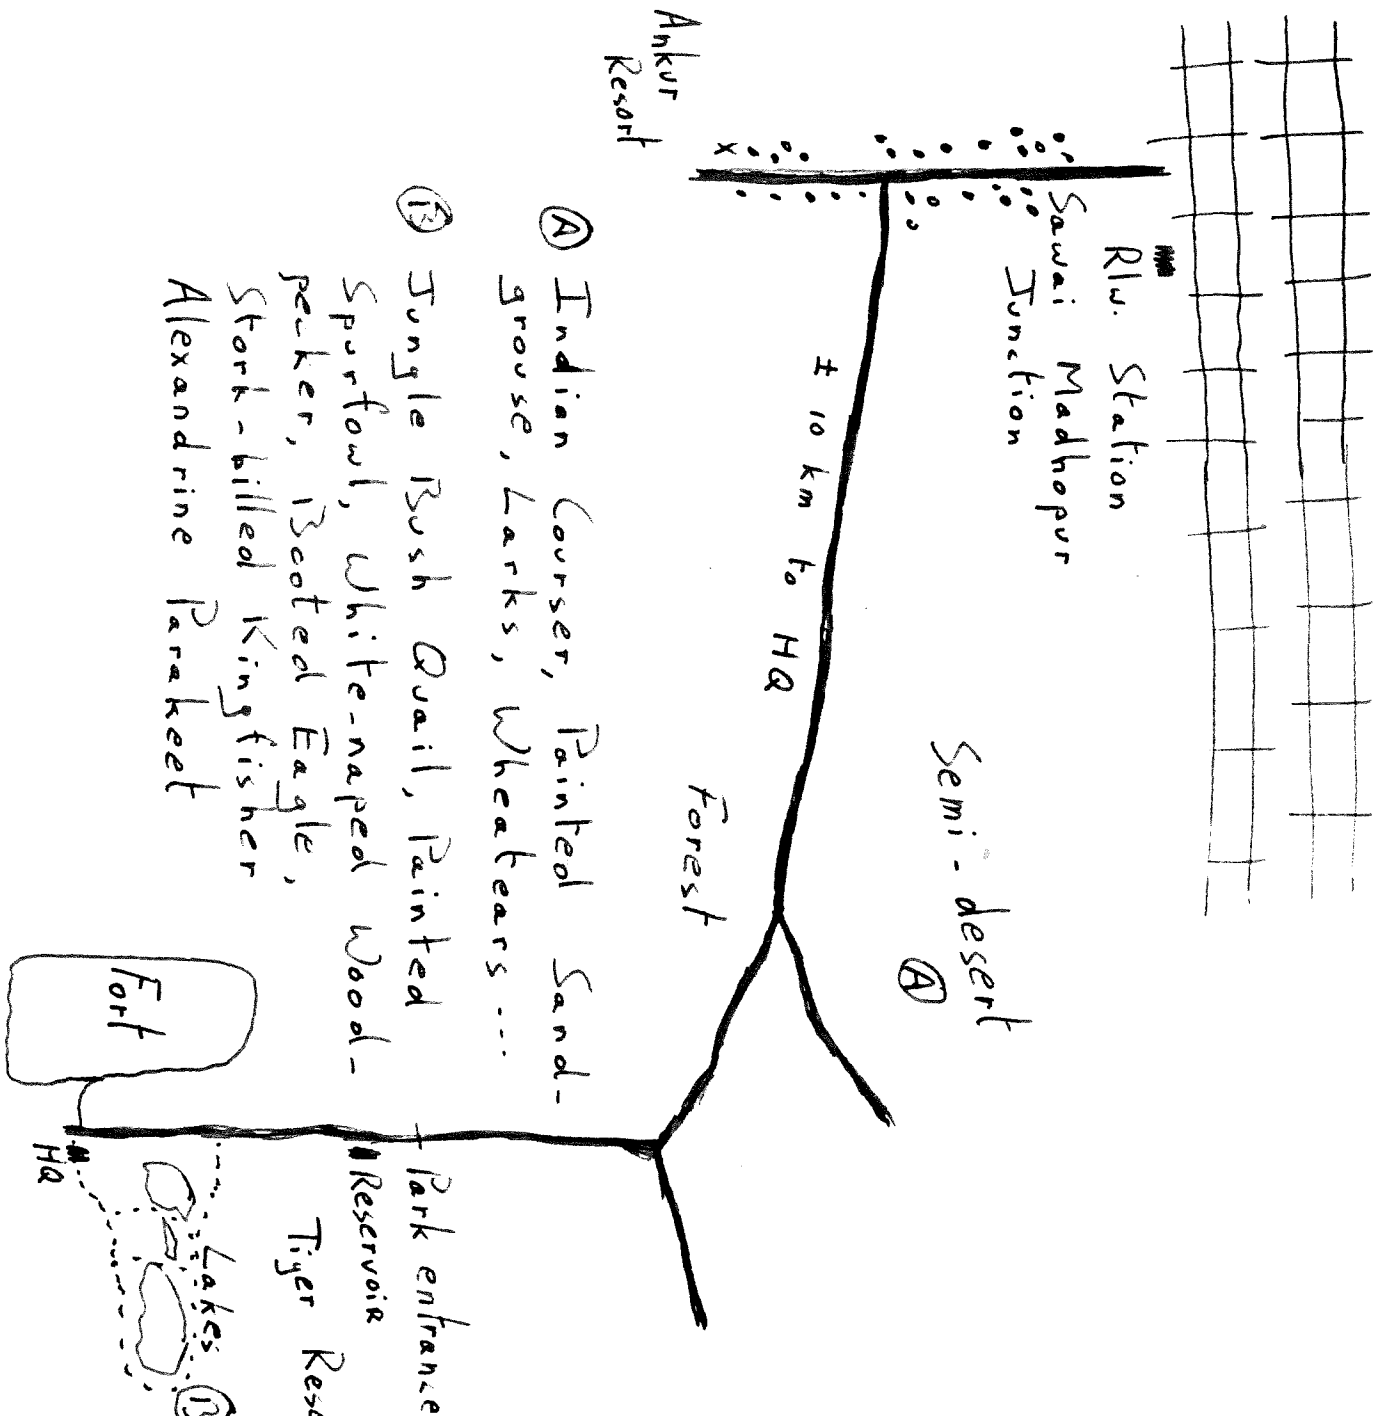 Rlw. Station
Sawai Madhopur
Junction
Ankur
Resort
± 10 km to HQ
Semi-desert
A
Forest
A Indian Courser, Painted Sand-
grouse, Larks, Wheatears...
B Jungle Bush Quail, Painted
Spurfowl, White-naped Wood-
pecker, Booted Eagle,
Stork-billed Kingfisher
Alexandrine Parakeet
Park entrance
Reservoir
Tiger
Lakes
B
Fort
HQ